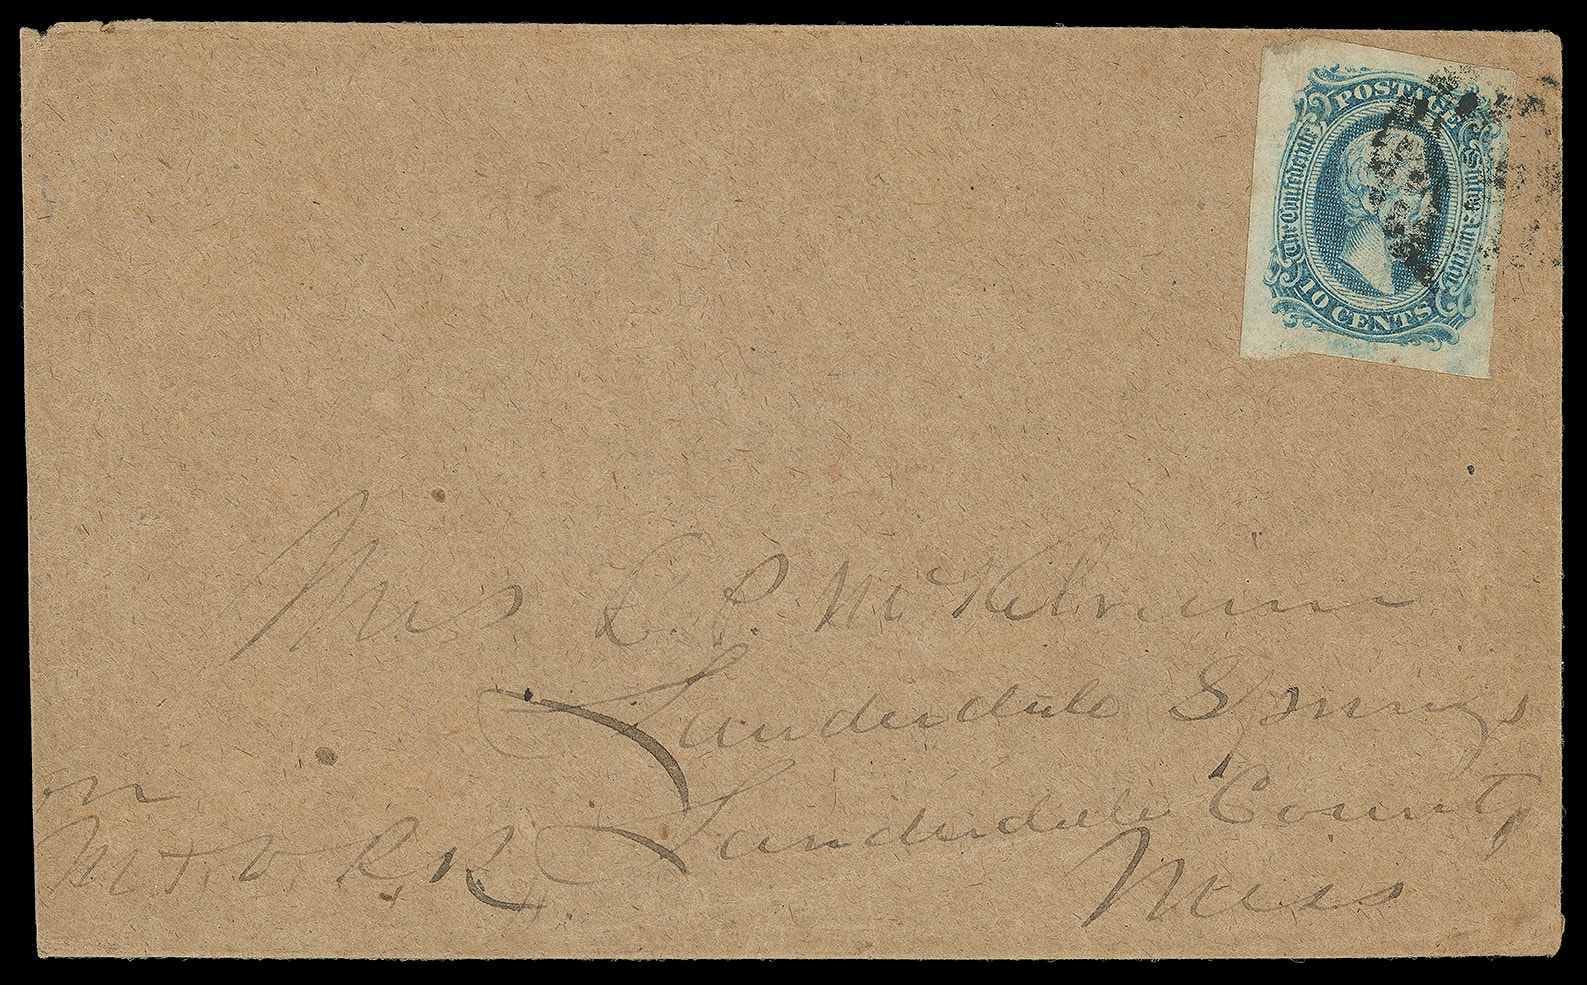 POSTAGE
The Confederate States of America
10 CENTS
Mrs L. P. McKelvain
Lauderdale Springs
Lauderdale County
Miss
on
M & O, R R,